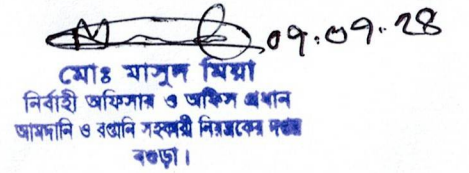 ০৭.০৭.২৪
মোঃ মাসুদ মিয়া
নির্বাহী অফিসার ও অফিস প্রধান
আমদানি ও রপ্তানি সহকারী নিয়ন্ত্রকের দপ্তর
বগুড়া।